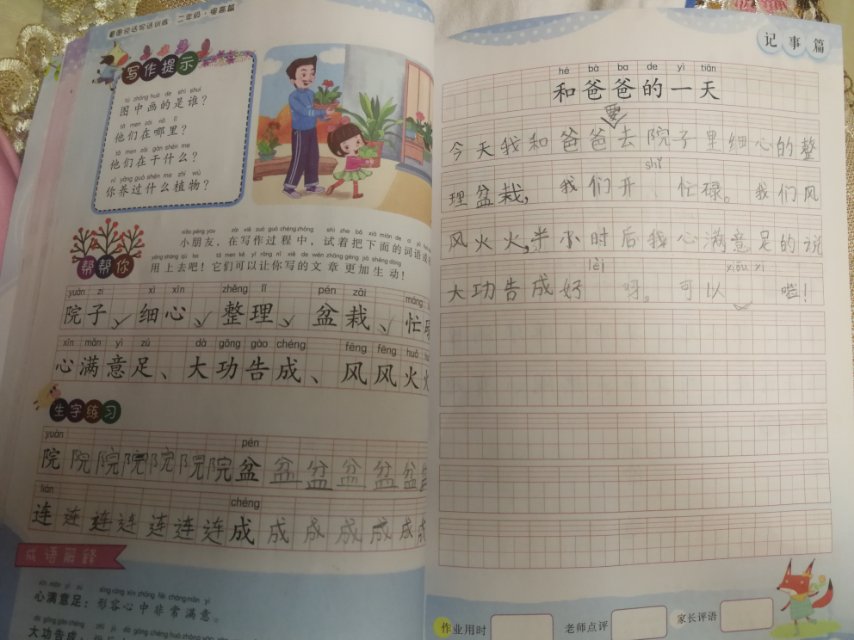 看图说话写话训练 二年级·提高篇
写作提示
tú zhōng huà de shì shuí
图中画的是谁？
tā men zài nǎ lǐ
他们在哪里？
tā men zài gàn shén me
他们在干什么？
nǐ yǎng guò shén me zhí wù
你养过什么植物？
帮帮你
小朋友，在写作过程中，试着把下面的词语或
用上去吧！它们可以让你写的文章更加生动！
yuàn zi xì xīn zhěng lǐ pén zāi máng
院子、细心、整理、盆栽、忙
xīn mǎn yì zú dà gōng gào chéng fēng fēng huǒ
心满意足、大功告成、风风火
生字练习
yuàn pén
院 院 院 院 院 院 院 盆 盆 盆 盆 盆 盆
lián chéng
连 连 连 连 连 连 连 成 成 成 成 成 成
成语解释
心满意足：形容心中非常满意。
大功告成：
记事篇
hé bà ba de yì tiān
和爸爸的一天
今天我和爸爸去院子里细心的整
shǐ
理盆栽，我们开 忙碌。我们风
风火火，半小时后我心满意足的说
lèi xiōu xi
大功告成好 呀。可以 啦！
作业用时
老师点评
家长评语